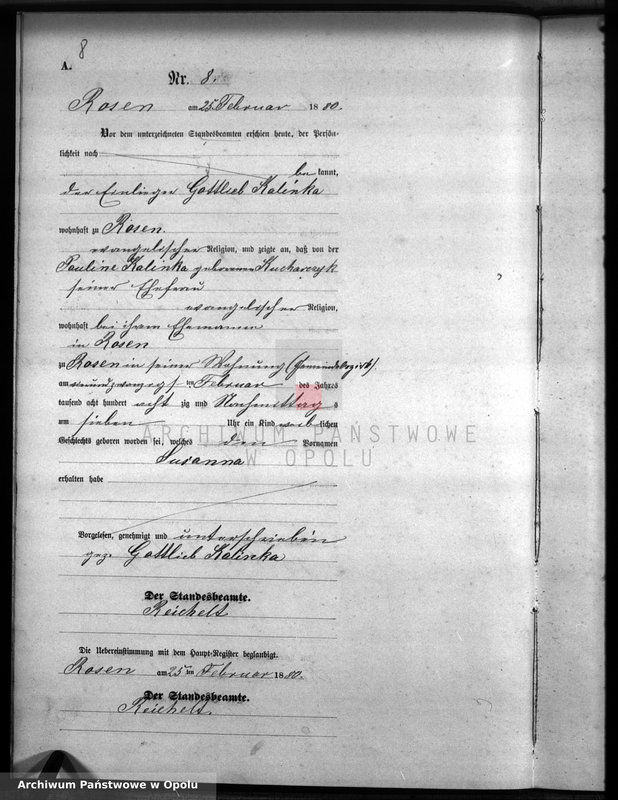 8
A.
Nr. 8.
Rosen am 25. Februar 1880.
Vor dem unterzeichneten Standesbeamten erschien heute, der Persön-
lichkeit nach
be kannt,
der Einlieger Gottlieb Kalinka
wohnhaft zu Rosen.
evangelischer Religion, und zeigte an, daß von der
Pauline Kalinka geborenen Kucharczyk
seiner Ehefrau
evangelischer Religion,
wohnhaft bei ihrem Ehemanne
in Rosen
zu Rosen in seiner Wohnung (Gemeindebezirk).
am ten Februar des Jahres
tausend acht hundert acht zig und Nachmittag s
um sieben Uhr ein Kind weiblichen
Geschlechts geboren worden sei, welches Vornamen
Susanna
erhalten habe
Vorgelesen, genehmigt und unterschrieben
gez. Gottlieb Kalinka
Der Standesbeamte.
Reichelt
Die Uebereinstimmung mit dem Haupt-Register beglaubigt.
Rosen am 25 ten Februar 1880.
Der Standesbeamte.
Reichelt.
ARCHIWUM PAŃSTWOWE
W OPOLU
Archiwum Państwowe w Opolu